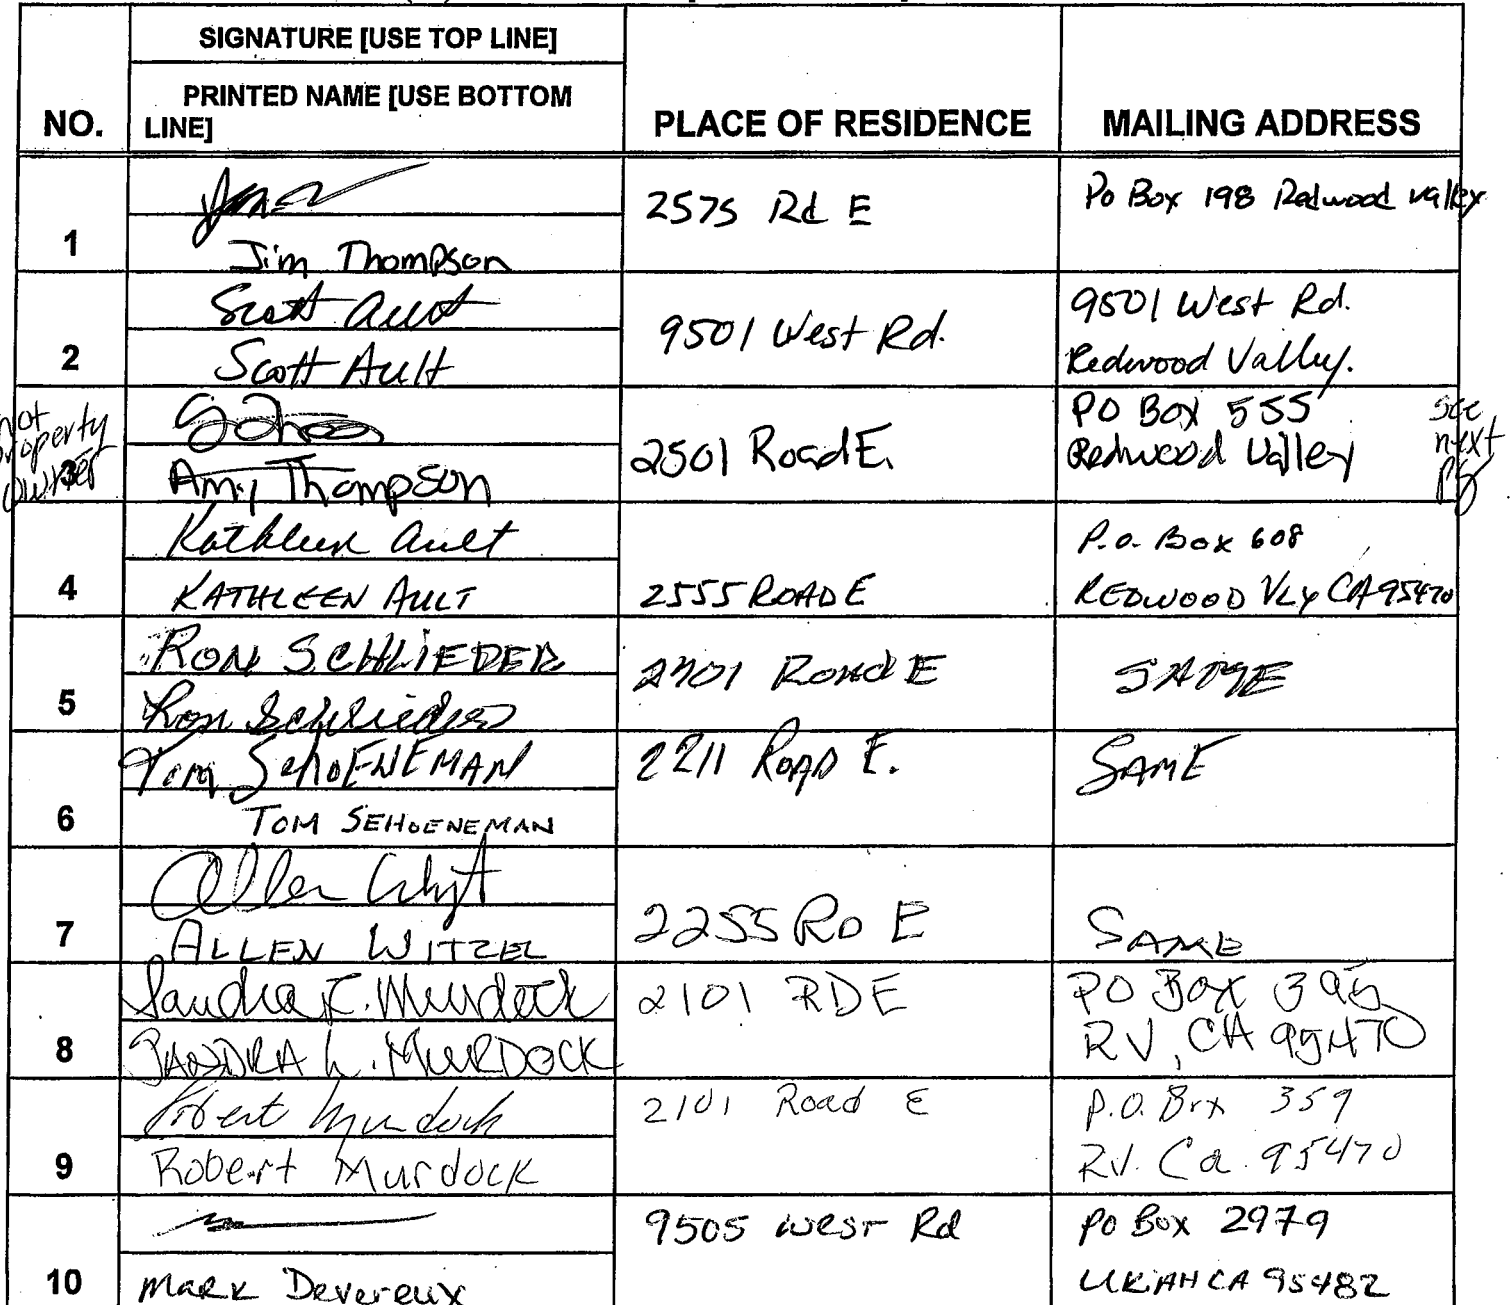 NO.
SIGNATURE [USE TOP LINE]
PRINTED NAME [USE BOTTOM
LINE]
PLACE OF RESIDENCE
MAILING ADDRESS
1
Jim Thompson
2575 Rd E
Po Box 198 Redwood Valley
2
Scott Ault
Scott Ault
9501 West Rd.
9501 West Rd.
Redwood Valley.
not
property
owner
3
Amy Thompson
2501 Road E.
PO BOX 555
Redwood Valley
see
next
pg
4
Kathleen Ault
KATHLEEN AULT
2555 ROAD E
P.O. Box 608
REDWOOD VLY CA 95470
5
RON SCHLIEDER
Ron Schlieder
2701 Road E
SAME
6
Tom SchoENEMAN
TOM SEHOENEMAN
2211 ROAD E.
SAME
7
Allen
ALLEN WITZEL
2255 RD E
SAME
8
Sandra L. Murdock
SANDRA L. MURDOCK
2101 RD E
PO BOX 395
RV, CA 95470
9
Robert Murdock
Robert Murdock
2101 Road E
P.O. Box 359
R.V. Ca. 95470
10
Mark Devereux
9505 West Rd
PO Box 2979
UKIAH CA 95482